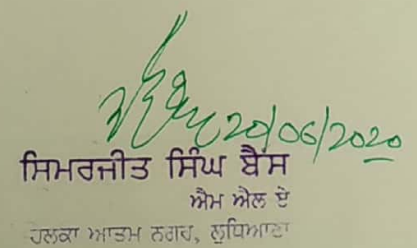 20/06/2020
ਸਿਮਰਜੀਤ ਸਿੰਘ ਬੈਂਸ
ਐਮ ਐਲ ਏ
ਹਲਕਾ ਆਤਮ ਨਗਰ, ਲੁਧਿਆਣਾ